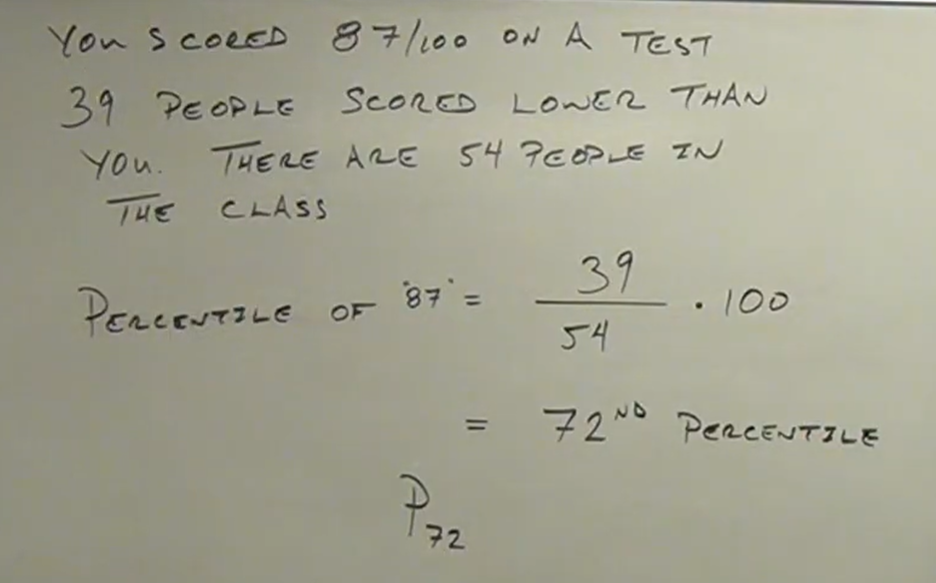 You SCORED 87/100 ON A TEST
39 PEOPLE SCORED LOWER THAN
YOU. THERE ARE 54 PEOPLE IN
THE CLASS
PERCENTILE OF "87" = 39/54 · 100
= 72ND PERCENTILE
P72